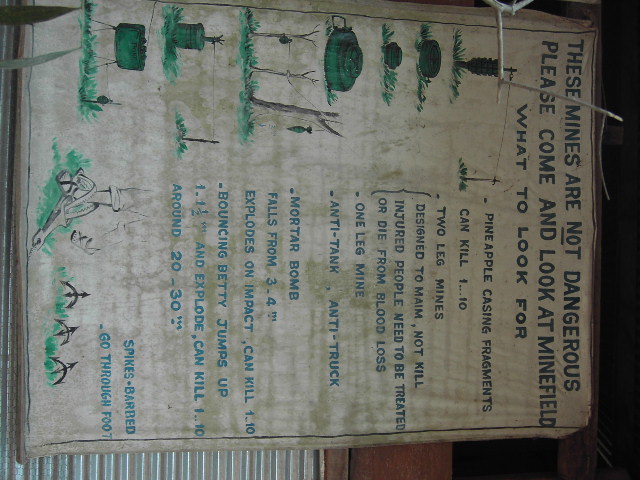 THESE MINES ARE NOT DANGEROUS
PLEASE COME AND LOOK AT MINEFIELD
WHAT TO LOOK FOR
- PINEAPPLE CASING FRAGMENTS
CAN KILL 1...10
- TWO LEG MINES
DESIGNED TO MAIM, NOT KILL
INJURED PEOPLE NEED TO BE TREATED
OR DIE FROM BLOOD LOSS
- ONE LEG MINE
- ANTI-TANK, ANTI-TRUCK
- MORTAR BOMB
FALLS FROM 3-4 "'
EXPLODES ON IMPACT, CAN KILL 1..10
- BOUNCING BETTY JUMPS UP
1-1½ "' AND EXPLODE, CAN KILL 1..10
AROUND 20-30 "'
SPIKES-BARBED
- GO THROUGH FOOT